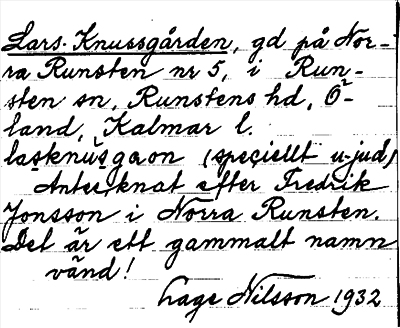 Lars-Knussgården, gd på Nor-
ra Runsten nr 5, i Run-
sten sn, Runstens hd, Ö-
land, Kalmar l.
lasknusgaon (speciellt u-ljud)
Antecknat efter Fredrik
Jonsson i Norra Runsten.
Det är ett gammalt namn
vänd!
Lage Nilsson 1932